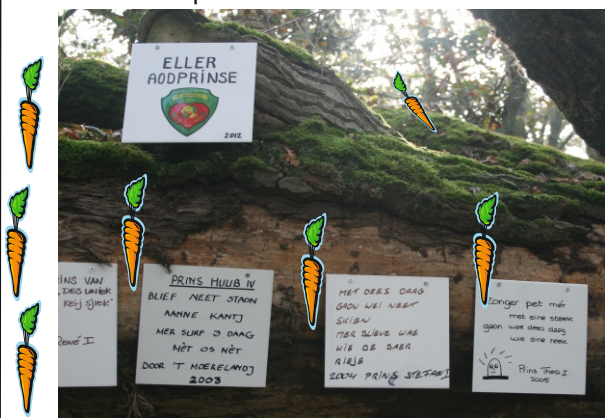 ELLER
AODPRINSE
2012
INS VAN
DES UNIEK
KEIJ SJIEK"
René I
PRINS HUUB IV
BLIEF NEET STAON
AANNE KANTJ
MER SURF 3 DAAG
MÈT OS NÈT
DOOR 'T MOERELANDJ
2003
MET DEES DAAG
GAON WEI NEET
SKIEN
MER BLIEVE WAE
HIE DE BAER
RIEJE
2004 PRINS STEFAE I
Zonger pet mér
met eine steek
gaon wae dees daag
wie eine reek
Prins Theo I
2005